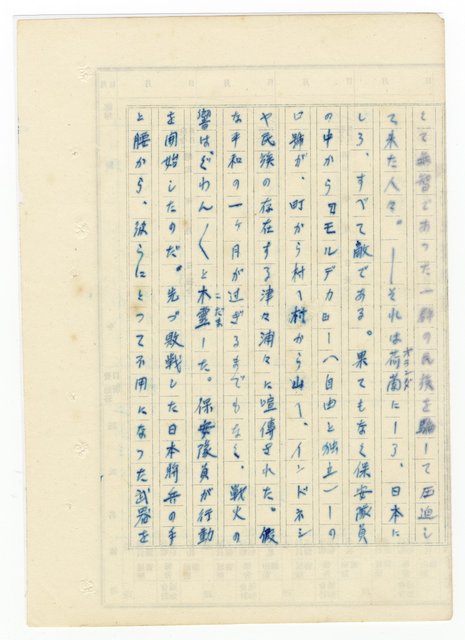 とて無智であった一群の民族を騙して圧迫し
て来た人々。—それは荷蘭にしろ、日本に
オランダ
しろ、すべて敵である。果てもなく保安隊員
の中から口モルデカロー（自由と独立）—の
叫號が、町から村へ村から山へ、インドネシ
や民族の存在する津々浦々に喧傳された。仮
な平和の一ヶ月が過ぎるまでもなく、戦火の
響は、ぐわん〳〵と木霊した。保安隊員が行動
こだま
を開始したのだ。先づ敗戦した日本将兵の手
と腰から、彼らにとって不用になった武器を